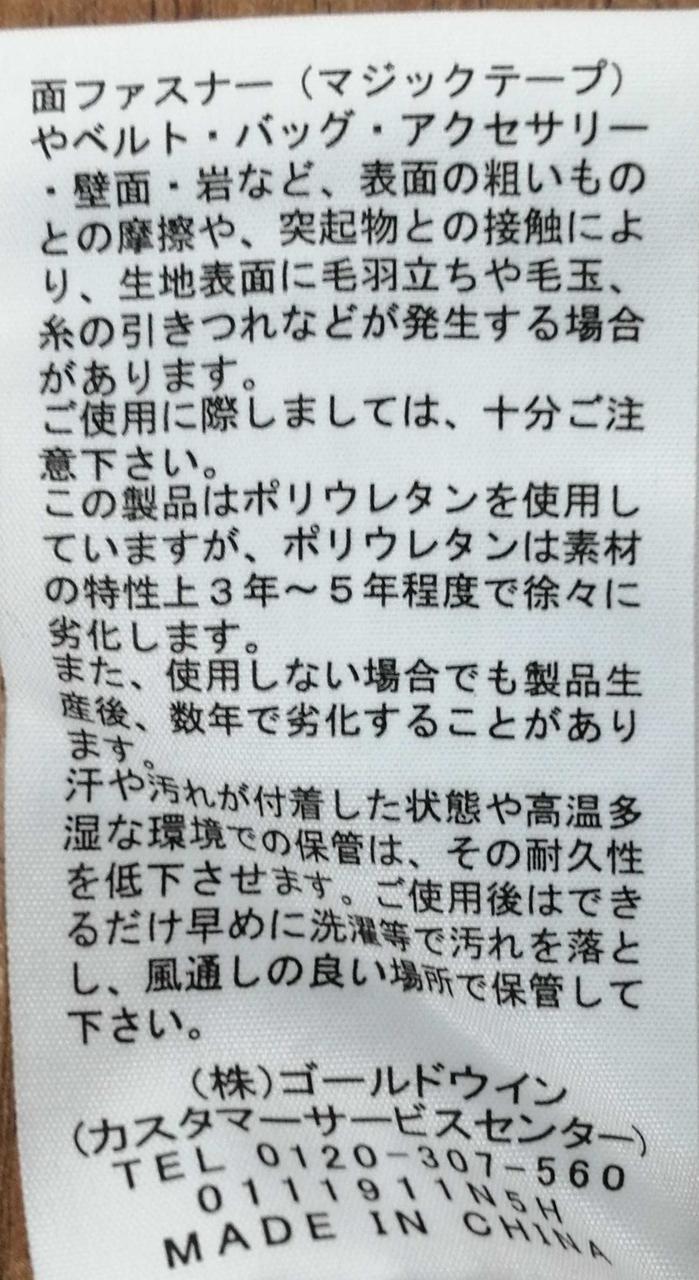 面ファスナー（マジックテープ）
やベルト・バッグ・アクセサリー
・壁面・岩など、表面の粗いもの
との摩擦や、突起物との接触によ
り、生地表面に毛羽立ちや毛玉、
糸の引きつれなどが発生する場合
があります。
ご使用に際しましては、十分ご注
意下さい。
この製品はポリウレタンを使用し
ていますが、ポリウレタンは素材
の特性上３年～５年程度で徐々に
劣化します。
また、使用しない場合でも製品生
産後、数年で劣化することがあり
ます。
汗や汚れが付着した状態や高温多
湿な環境での保管は、その耐久性
を低下させます。ご使用後はでき
るだけ早めに洗濯等で汚れを落と
し、風通しの良い場所で保管して
下さい。
（株）ゴールドウイン
（カスタマーサービスセンター）
TEL 0120-307-560
0111911N5H
MADE IN CHINA